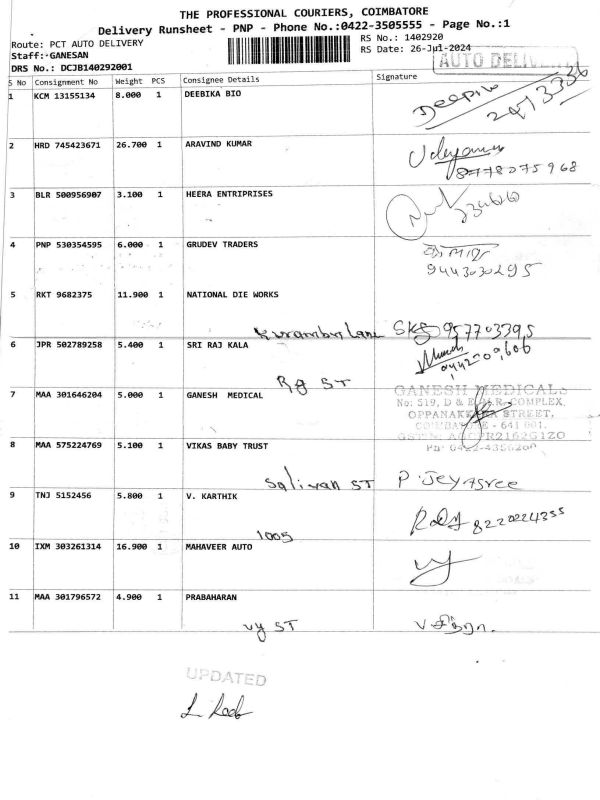 THE PROFESSIONAL COURIERS, COIMBATORE
Delivery Runsheet - PNP - Phone No.:0422-3505555 - Page No.:1
Route: PCT AUTO DELIVERY
RS No.: 1402920
Staff: GANESAN
RS Date: 26-Jul-2024
AUTO DELIVERY
DRS No.: DCJB140292001
S No Consignment No Weight PCS Consignee Details Signature
1 KCM 13155134 8.000 1 DEEBIKA BIO
Deepika
2 HRD 745423671 26.700 1 ARAVIND KUMAR
8778075968
3 BLR 500956907 3.100 1 HEERA ENTRIPRISES
4 PNP 530354595 6.000 1 GRUDEV TRADERS
9443030295
5 RKT 9682375 11.900 1 NATIONAL DIE WORKS
SKS 957703395
6 JPR 502789258 5.400 1 SRI RAJ KALA
RG ST
7 MAA 301646204 5.000 1 GANESH MEDICAL
GANESH MEDICALS
No: 519, D & E, COMPLEX,
OPPANAKKARA STREET,
COIMBATORE - 641 001.
8 MAA 575224769 5.100 1 VIKAS BABY TRUST
Salivan ST P. Jeyasree
9 TNJ 5152456 5.800 1 V. KARTHIK
1005 8220224355
10 IXM 303261314 16.900 1 MAHAVEER AUTO
11 MAA 301796572 4.900 1 PRABAHARAN
vy ST
UPDATED